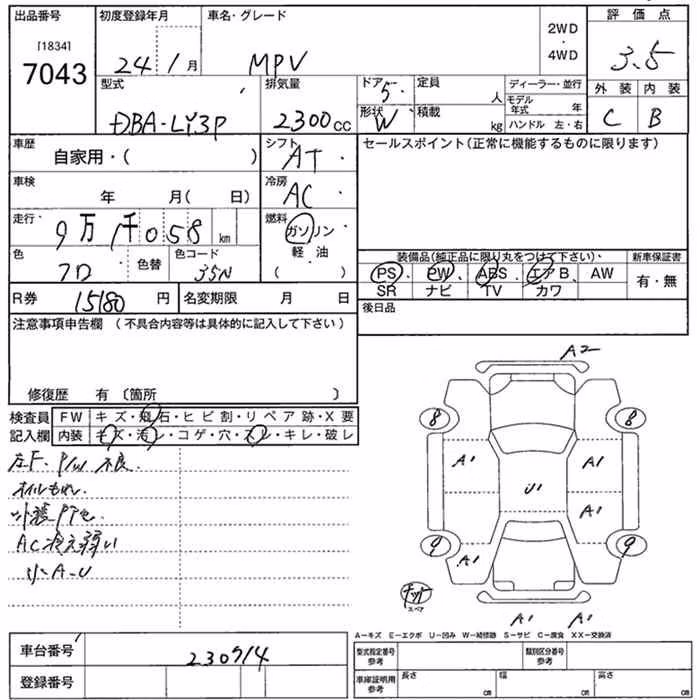 出品番号 初度登録年月 車名・グレード 2WD 評価点
[1834] 7043 24年 1月 MPV 4WD 3.5
型式 排気量 ドア 5 定員 人 ディーラー・並行 外装 内装
DBA-LY3P 2300cc 形状 W 積載 kg モデル年式 年 C B
ハンドル 左・右
車歴 自家用・( ) シフト AT セールスポイント(正常に機能するものに限ります)
車検 年 月( 日) 冷房 AC
走行 9万1千058km 燃料 ガソリン
軽油
( )
色 色替 色コード 35N
装備品(純正品に限り丸をつけて下さい) 新車保証書
PS PW ABS エアB AW 有・無
SR ナビ TV カワ
R券 15180円 名変期限 月 日 後日品
注意事項申告欄 (不具合内容等は具体的に記入して下さい)
修復歴 有 〔箇所 〕
検査員 FW キズ・飛石・ヒビ割・リペア跡・X要
記入欄 内装 キズ・汚レ・コゲ・穴・スレ・キレ・破レ
左F. P/W 不良.
オイルもれ.
AC冷え弱い
小A-U
A2
8 8
A1 A1
U1
A1
9 9
A1
スペア
A1 A1
A−キズ E−エクボ U−凹み W−補修跡 S−サビ C−腐食 XX−交換済
車台番号 230714
登録番号
型式指定番号 参考 類別区分番号 参考
車庫証明用 参考 長さ cm 幅 cm 高さ cm